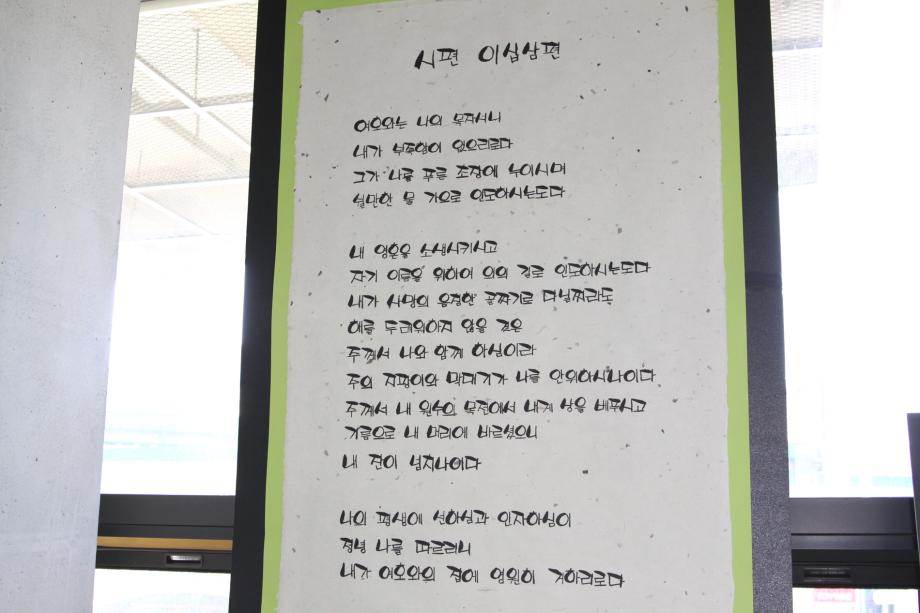 시편 이십삼편
여호와는 나의 목자시니
내가 부족함이 없으리로다
그가 나를 푸른 초장에 누이시며
쉴만한 물 가으로 인도하시는도다
내 영혼을 소생시키시고
자기 이름을 위하여 의의 길로 인도하시는도다
내가 사망의 음침한 골짜기로 다닐찌라도
해를 두려워하지 않을 것은
주께서 나와 함께 하심이라
주의 지팡이와 막대기가 나를 안위하시나이다
주께서 내 원수의 목전에서 내게 상을 베푸시고
기름으로 내 머리에 바르셨으니
내 잔이 넘치나이다
나의 평생에 선하심과 인자하심이
정녕 나를 따르리니
내가 여호와의 집에 영원히 거하리로다